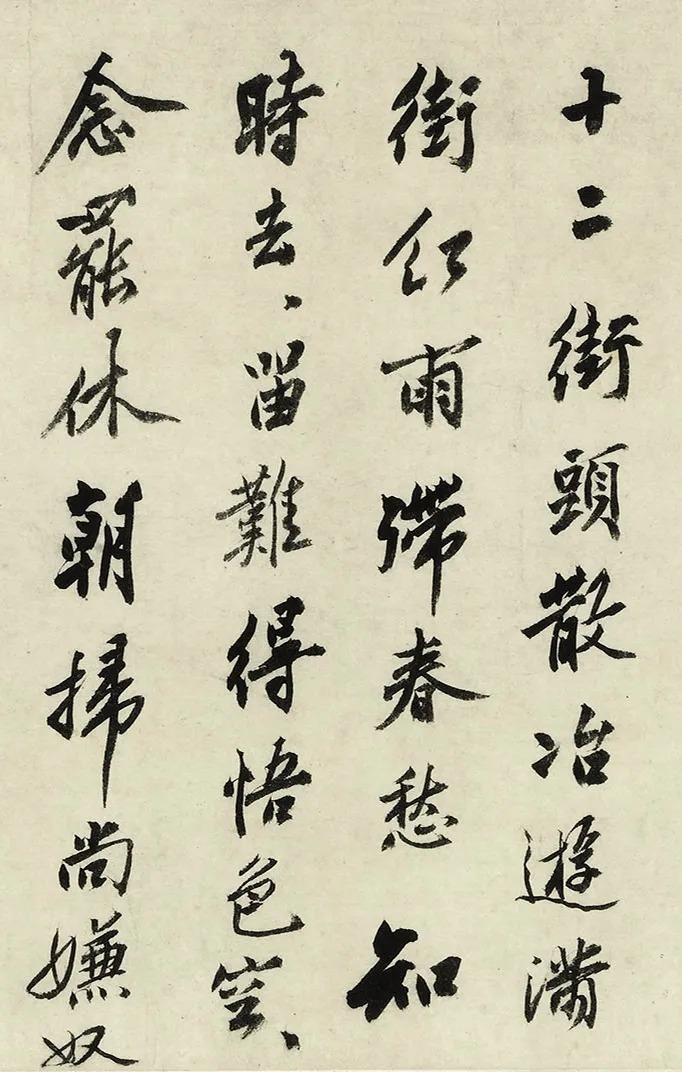 十二街頭散冶遊滿
街紅雨滯春愁知
時去、留難得悟色空、
念罷休朝掃尚嫌奴